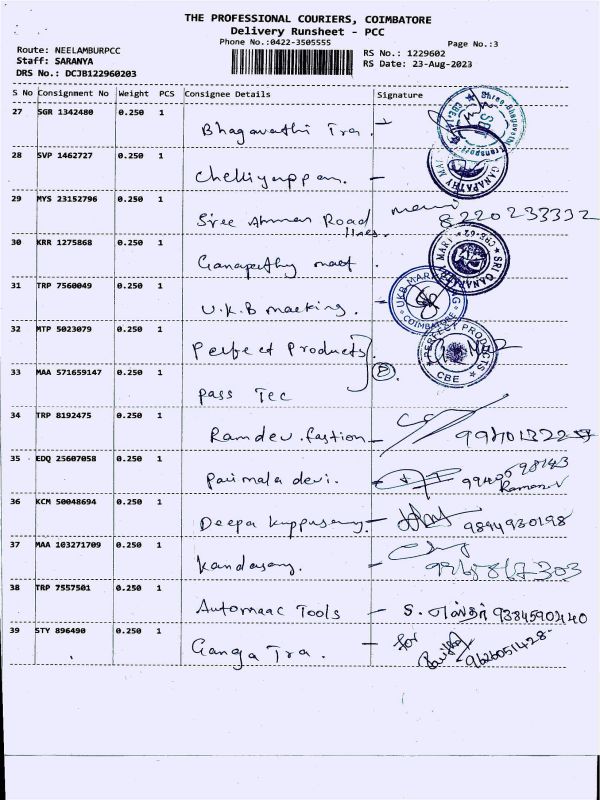 THE PROFESSIONAL COURIERS, COIMBATORE
Delivery Runsheet - PCC
Phone No.:0422-3505555
Page No.:3
Route: NEELAMBURPCC
RS No.: 1229602
Staff: SARANYA
RS Date: 23-Aug-2023
DRS No.: DCJB122960203
S No Consignment No Weight PCS Consignee Details Signature
27 SGR 1342480 0.250 1 Bhagavathi Tra.
28 SVP 1462727 0.250 1 Chelliyappan.
29 MYS 23152796 0.250 1 Sree Amman Road lines. 8220233332
30 KRR 1275868 0.250 1 Ganapathy mart. SRI GANAPATHY MART CBE-62
31 TRP 7560049 0.250 1 U.K.B marking. UKB MARKETING COIMBATORE
32 MTP 5023079 0.250 1 Perfect Products PERFECT PRODUCTS CBE
33 MAA 571659147 0.250 1 Pass Tec
34 TRP 8192475 0.250 1 Ramdev. fastion
35 EDQ 25607058 0.250 1 Parimala devi.
36 KCM 50048694 0.250 1 Deepa Kuppusamy 9894930198
37 MAA 103271709 0.250 1 Kandasamy.
38 TRP 7557501 0.250 1 Automaac Tools 9384590440
39 STY 896490 0.250 1 Ganga Tra. for 9626051428